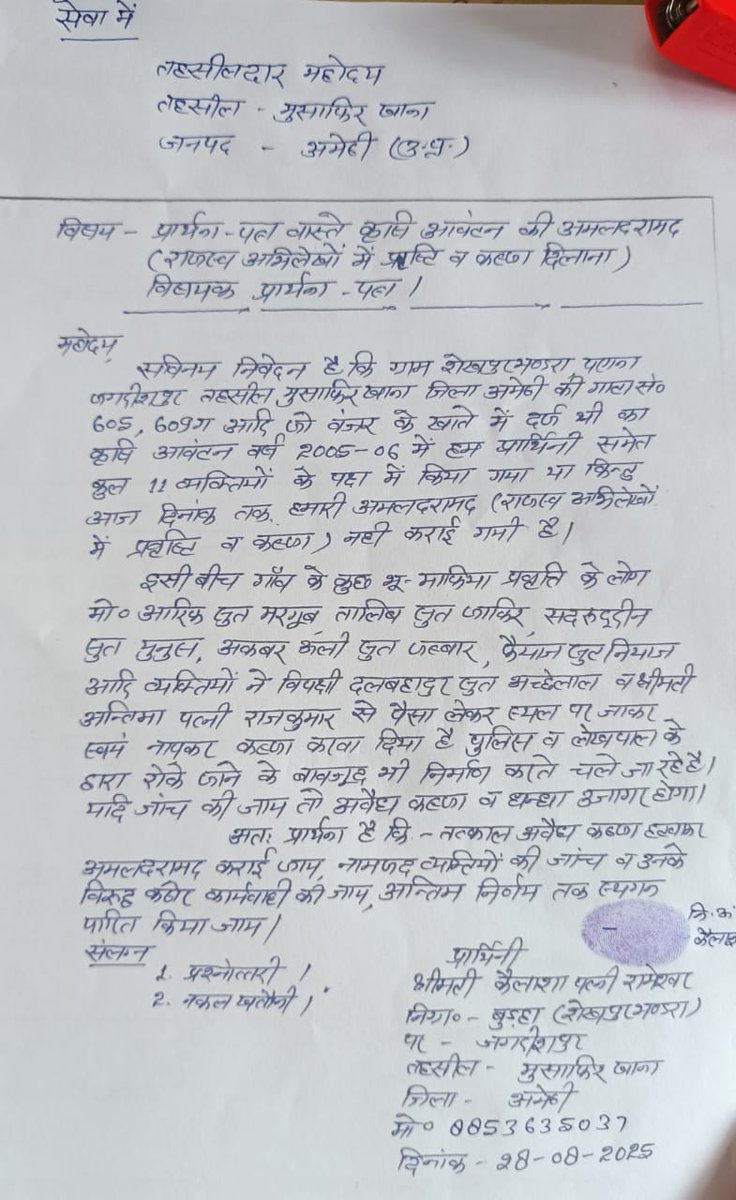 सेवा में
तहसीलदार महोदय
तहसील - मुसाफिर खाना
जनपद - अमेठी (उ.प्र.)
विषय - प्रार्थना-पत्र वास्ते कृषि आवंटन की अमलदरामद
(राजस्व अभिलेखों में प्रविष्टि व कब्जा दिलाना)
विषयक प्रार्थना-पत्र।
महोदय,
सविनय निवेदन है कि ग्राम शेखपुर भण्डरा, परगना
जगदीशपुर तहसील मुसाफिर खाना जिला अमेठी की गाटा सं०
605, 609ग आदि जो बंजर के खाते में दर्ज थी का
कृषि आवंटन वर्ष 2005-06 में हम प्रार्थिनी समेत
कुल 11 व्यक्तियों के पक्ष में किया गया था किन्तु
आज दिनांक तक हमारी अमलदरामद (राजस्व अभिलेखों
में प्रविष्टि व कब्जा) नही कराई गयी है।
इसी बीच गाँव के कुछ भू-माफिया प्रवृत्ति के लोग
मो० आरिफ पुत्र मरगूब, तालिब पुत्र जाकिर, सदरूद्दीन
पुत्र मुनुस, अकबर अली पुत्र जब्बार, फैमान पुत्र नियाज
आदि व्यक्तियों ने विपक्षी दलबहादुर पुत्र अच्छेलाल व श्रीमती
अन्तिमा पत्नी राजकुमार से पैसा लेकर स्थल पर जाकर
स्वयं नापकर कब्जा करवा दिया है पुलिस व लेखपाल के
द्वारा रोके जाने के बावजूद भी निर्माण करते चले जा रहे है।
यदि जांच की जाय तो अवैध कब्जा व धन्धा उजागर होगा।
अतः प्रार्थना है कि - तत्काल अवैध कब्जा हटवाकर
अमलदरामद कराई जाय, नामजद व्यक्तियों की जांच व उनके
विरुद्ध कठोर कार्यवाही की जाय, अन्तिम निर्णय तक स्थगन
पारित किया जाय।
नि.अं
कैलाश
संलग्न
1. प्रश्नोत्तरी।
2. नकल खतौनी।
प्रार्थिनी
श्रीमती कैलाशा पत्नी रामेश्वर
निग्रा०- बुड़हा (शेखपुर भण्डरा)
पर - जगदीशपुर
तहसील - मुसाफिर खाना
जिला - अमेठी
मो० 8853635037
दिनांक - 28-08-2025